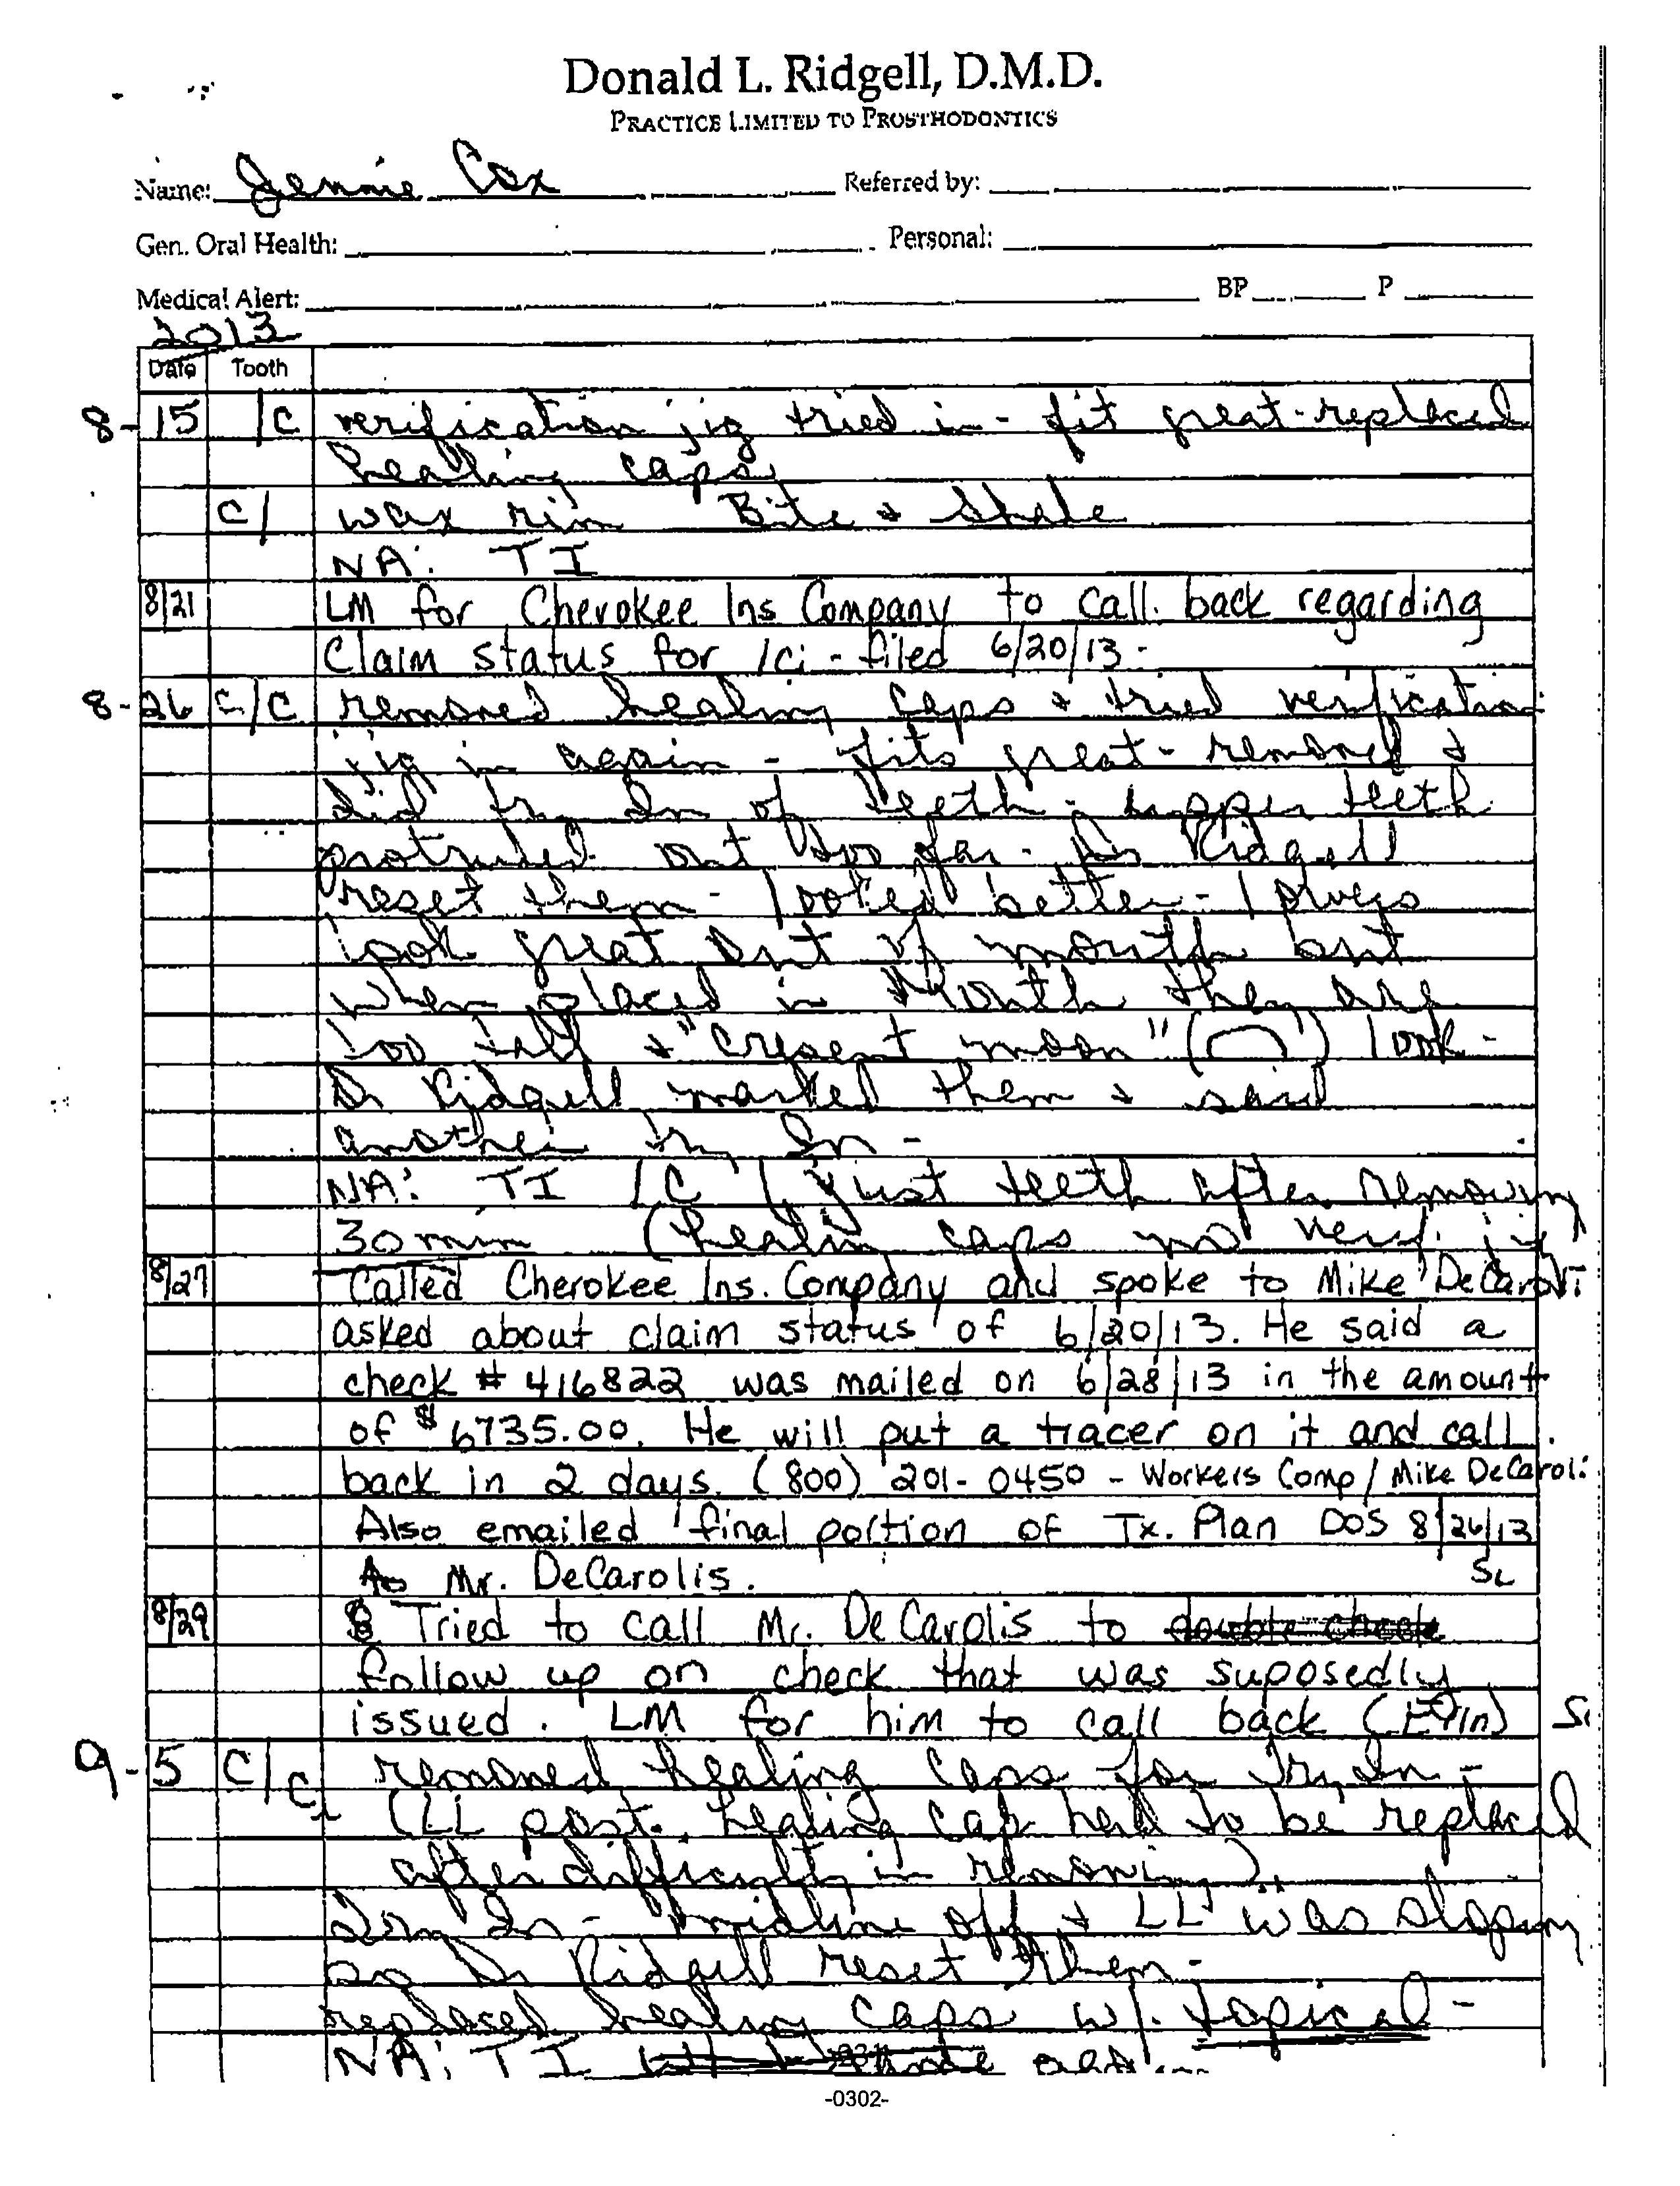 Donald L. Ridgell, D.M.D.
PRACTICE LIMITED TO PROSTHODONTICS
Name: Jennie Cox Referred by:
Gen. Oral Health: Personal:
Medical Alert: BP P
2013
Date Tooth
8-15 /C verification jig tried in - fit great - replaced
healing caps
C/ wax rim Bite & Shade
NA: TI
8/21 LM for Cherokee Ins Company to call back regarding
Claim status for /ci - filed 6/20/13 -
8-26 C/C removed healing caps & tried verification
jig in again - fits great - removed &
did try In of teeth - upper teeth
protruded out too far - Dr Ridgell
reset them - looked better - lowers
look great out of mouth but
when placed in mouth they are
too tall & "cresent moon" ( ) look -
Dr Ridgell marked them & said
another try In -
NA: TI /C (just teeth after removing
30 min (healing caps no verif. jig
8/27 Called Cherokee Ins. Company and spoke to Mike DeCaroli
asked about claim status of 6/20/13. He said a
check # 416822 was mailed on 6/28/13 in the amount
of $6735.00. He will put a tracer on it and call
back in 2 days. (800) 201-0450 - Workers Comp / Mike DeCaroli
Also emailed final portion of Tx. Plan DOS 8/26/13
to Mr. DeCarolis. SL
8/29 Tried to call Mr. DeCarolis to double check
follow up on check that was suposedly
issued. LM for him to call back (Erin)
9-5 C/C removed healing caps for Try In -
(LL post. healing cap had to be replaced
after difficulty in removing).
Try In - midline off & LL was sloping
so Dr Ridgell reset them -
replaced healing caps w/ topical -
NA: TI
-0302-